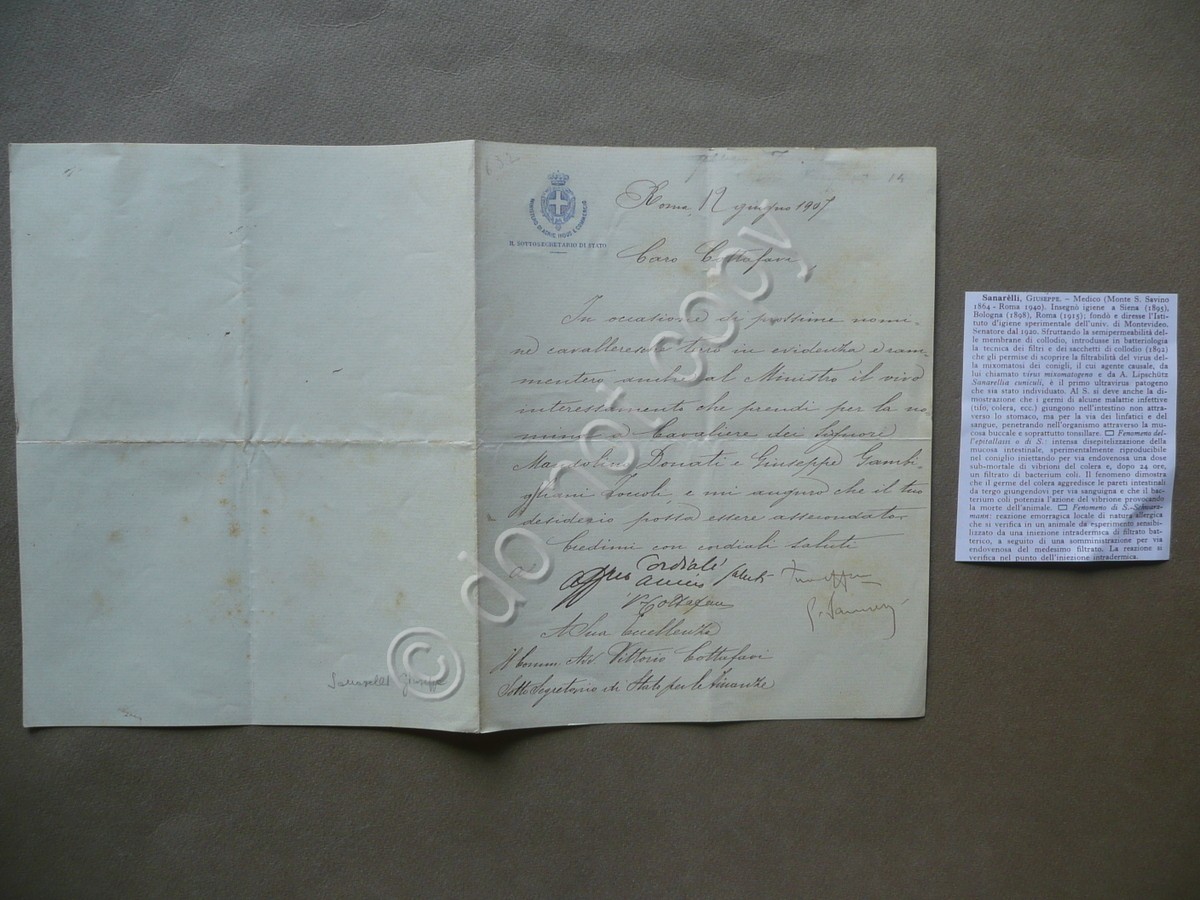 MINISTERO DI AGRIC. INDUS. E COMMERCIO
IL SOTTOSEGRETARIO DI STATO
Roma, 12 giugno 1907
Caro Cottafavi,
In occasione di prossime nomi-
ne cavalleresche terrò in evidenza e ram-
menterò anche al Ministro il vivo
interessamento che prendi per la no-
mina a Cavaliere dei Signori
Donati e Giuseppe Gambi-
gliani Zoccoli, e mi auguro che il tuo
desiderio possa essere assecondato.
Credimi con cordiali saluti
cordiali
amico saluti
V. Cottafavi
G. Sanarelli
A Sua Eccellenza
Il Comm. Avv. Vittorio Cottafavi
Sotto Segretario di Stato per le Finanze
Sanarelli Giuseppe
Sanarèlli, GIUSEPPE. – Medico (Monte S. Savino
1864 - Roma 1940). Insegnò igiene a Siena (1895),
Bologna (1898), Roma (1915); fondò e diresse l'Isti-
tuto d'igiene sperimentale dell'univ. di Montevideo.
Senatore dal 1920. Sfruttando la semipermeabilità del-
le membrane di collodio, introdusse in batteriologia
la tecnica dei filtri e dei sacchetti di collodio (1892)
che gli permise di scoprire la filtrabilità del virus del-
la mixomatosi dei conigli, il cui agente causale, da
lui chiamato virus mixomatogeno e da A. Lipschütz
Sanarellia cuniculi, è il primo ultravirus patogeno
che sia stato individuato. Al S. si deve anche la di-
mostrazione che i germi di alcune malattie infettive
(tifo, colera, ecc.) giungono nell'intestino non attra-
verso lo stomaco, ma per la via dei linfatici e del
sangue, penetrando nell'organismo attraverso la mu-
cosa buccale e soprattutto tonsillare. □ Fenomeno del-
l'epitallassi o di S.: intensa disepitelizzazione della
mucosa intestinale, sperimentalmente riproducibile
nel coniglio iniettando per via endovenosa una dose
sub-mortale di vibrioni del colera e, dopo 24 ore,
un filtrato di bacterium coli. Il fenomeno dimostra
che il germe del colera aggredisce le pareti intestinali
da tergo giungendovi per via sanguigna e che il bac-
terium coli potenzia l'azione del vibrione provocando
la morte dell'animale. □ Fenomeno di S.-Schwarz-
mann: reazione emorragica locale di natura allergica
che si verifica in un animale da esperimento sensibi-
lizzato da una iniezione intradermica di filtrato bat-
terico, a seguito di una somministrazione per via
endovenosa del medesimo filtrato. La reazione si
verifica nel punto dell'iniezione intradermica.
© do not copy